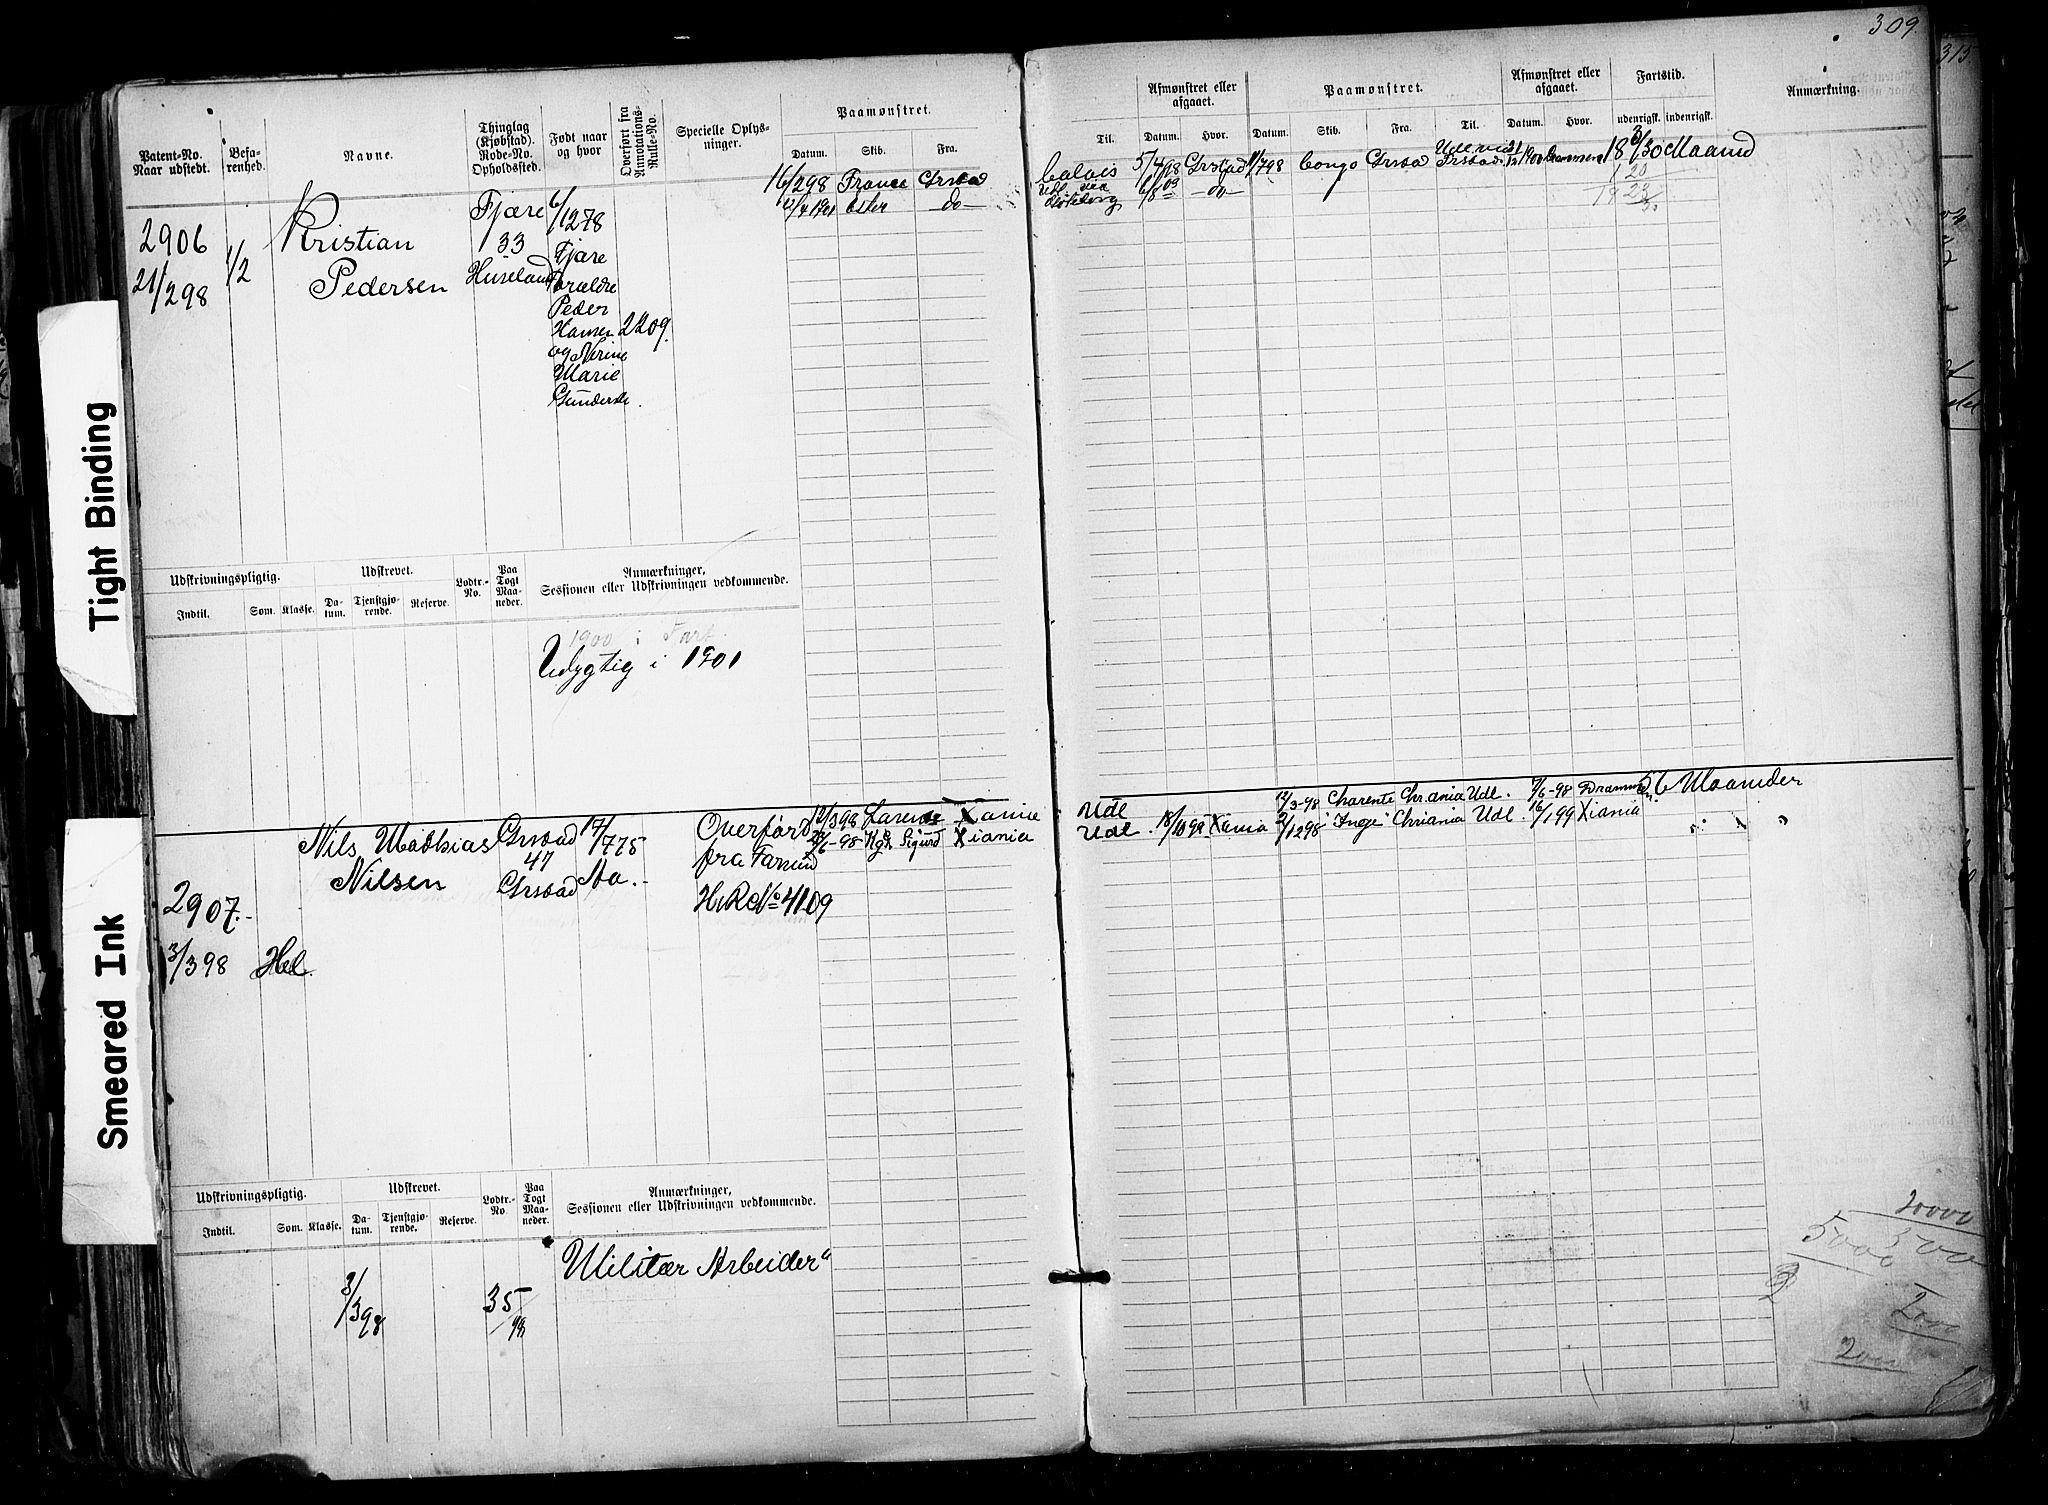 309.
315
Patent-No.
Naar udstedt.
Befa-
renhed.
Navne.
Thinglag
(Kjøbstad).
Rode-No.
Opholdssted.
Født naar
og hvor
Overført fra
Annotations-
Rulle-No.
Specielle Oplys-
ninger.
Paamønstret.
Datum. Skib. Fra.
Til.
Afmønstret eller
afgaaet.
Datum. Hvor.
Paamønstret.
Datum. Skib. Fra. Til.
Afmønstret eller
afgaaet.
Datum. Hvor.
Fartstid.
udenrigsk. indenrigsk.
Anmærkning.
2906
21/298
1/2
Kristian
Pedersen
Fjære
133
Huseland
6/1278
Fjære
Forældre
Peder
Hansen 2209.
og Nerine
Marie
Gunderdt.
16/298 France Grstad
13/4 1901 Ester - do -
Calais 5/4 98 Grstad 11/798 Congo Grstad
Udl. via
Gøteborg 6/8 03 - do -
18 3/30 Maaned
1 20
19 23/30
Udskrivningspligtig.
Indtil. Som. Klasse.
Udskrevet.
Da-
tum.
Tjenstgjø-
rende.
Reserve.
Lodtr.-
No.
Paa
Togt
Maa-
neder.
Anmærkninger,
Sessionen eller Udskrivningen vedkommende.
1900 i Fart.
Udygtig i 1901
2907.-
3/398
Hel.
Nils Mathias
Nilsen
Grstad
47
Grstad
17/775
Aa.-
Overført
fra Farsund
H.R. No 4109
12/398 Xania
22/6-98 Kgh. Sigurd Xiania
Udl
Udl. 18/1098 Xania
12/3-98 Charente Chr.ania Udl. 7/6-98 Drammen 56 Maaneder
2/1298 "Inge" Chriania Udl. 16/199 Xiania " " "
Udskrivningspligtig.
Indtil. Som. Klasse.
Udskrevet.
Da-
tum.
Tjenstgjø-
rende.
Reserve.
Lodtr.-
No.
Paa
Togt
Maa-
neder.
Anmærkninger,
Sessionen eller Udskrivningen vedkommende.
3/398
35/98
Militær Arbeider"
20000
5000 5000
2
2000
Tight Binding
Smeared Ink